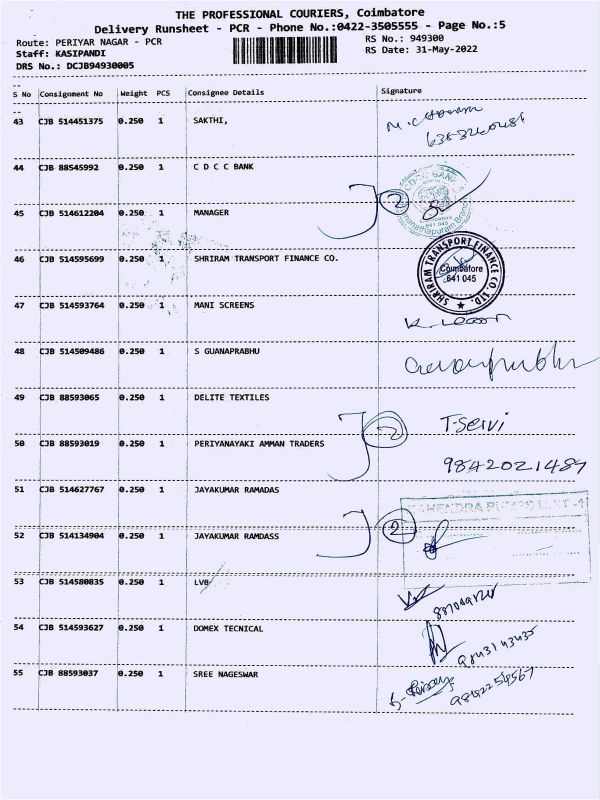 THE PROFESSIONAL COURIERS, Coimbatore
Delivery Runsheet - PCR - Phone No.:0422-3505555 - Page No.:5
Route: PERIYAR NAGAR - PCR
RS No.: 949300
Staff: KASIPANDI
RS Date: 31-May-2022
DRS No.: DCJB94930005
S No Consignment No Weight PCS Consignee Details Signature
43 CJB 514451375 0.250 1 SAKTHI,
44 CJB 88545992 0.250 1 C D C C BANK
2
45 CJB 514612204 0.250 1 MANAGER
46 CJB 514595699 0.250 1 SHRIRAM TRANSPORT FINANCE CO.
SHRIRAM TRANSPORT FINANCE CO. LTD.
Coimbatore
641 045
47 CJB 514593764 0.250 1 MANI SCREENS
48 CJB 514509486 0.250 1 S GUANAPRABHU
49 CJB 88593065 0.250 1 DELITE TEXTILES
2 T-Servi
50 CJB 88593019 0.250 1 PERIYANAYAKI AMMAN TRADERS
9842021487
51 CJB 514627767 0.250 1 JAYAKUMAR RAMADAS
2
52 CJB 514134904 0.250 1 JAYAKUMAR RAMDASS
53 CJB 514580835 0.250 1 LVB
54 CJB 514593627 0.250 1 DOMEX TECNICAL
55 CJB 88593037 0.250 1 SREE NAGESWAR